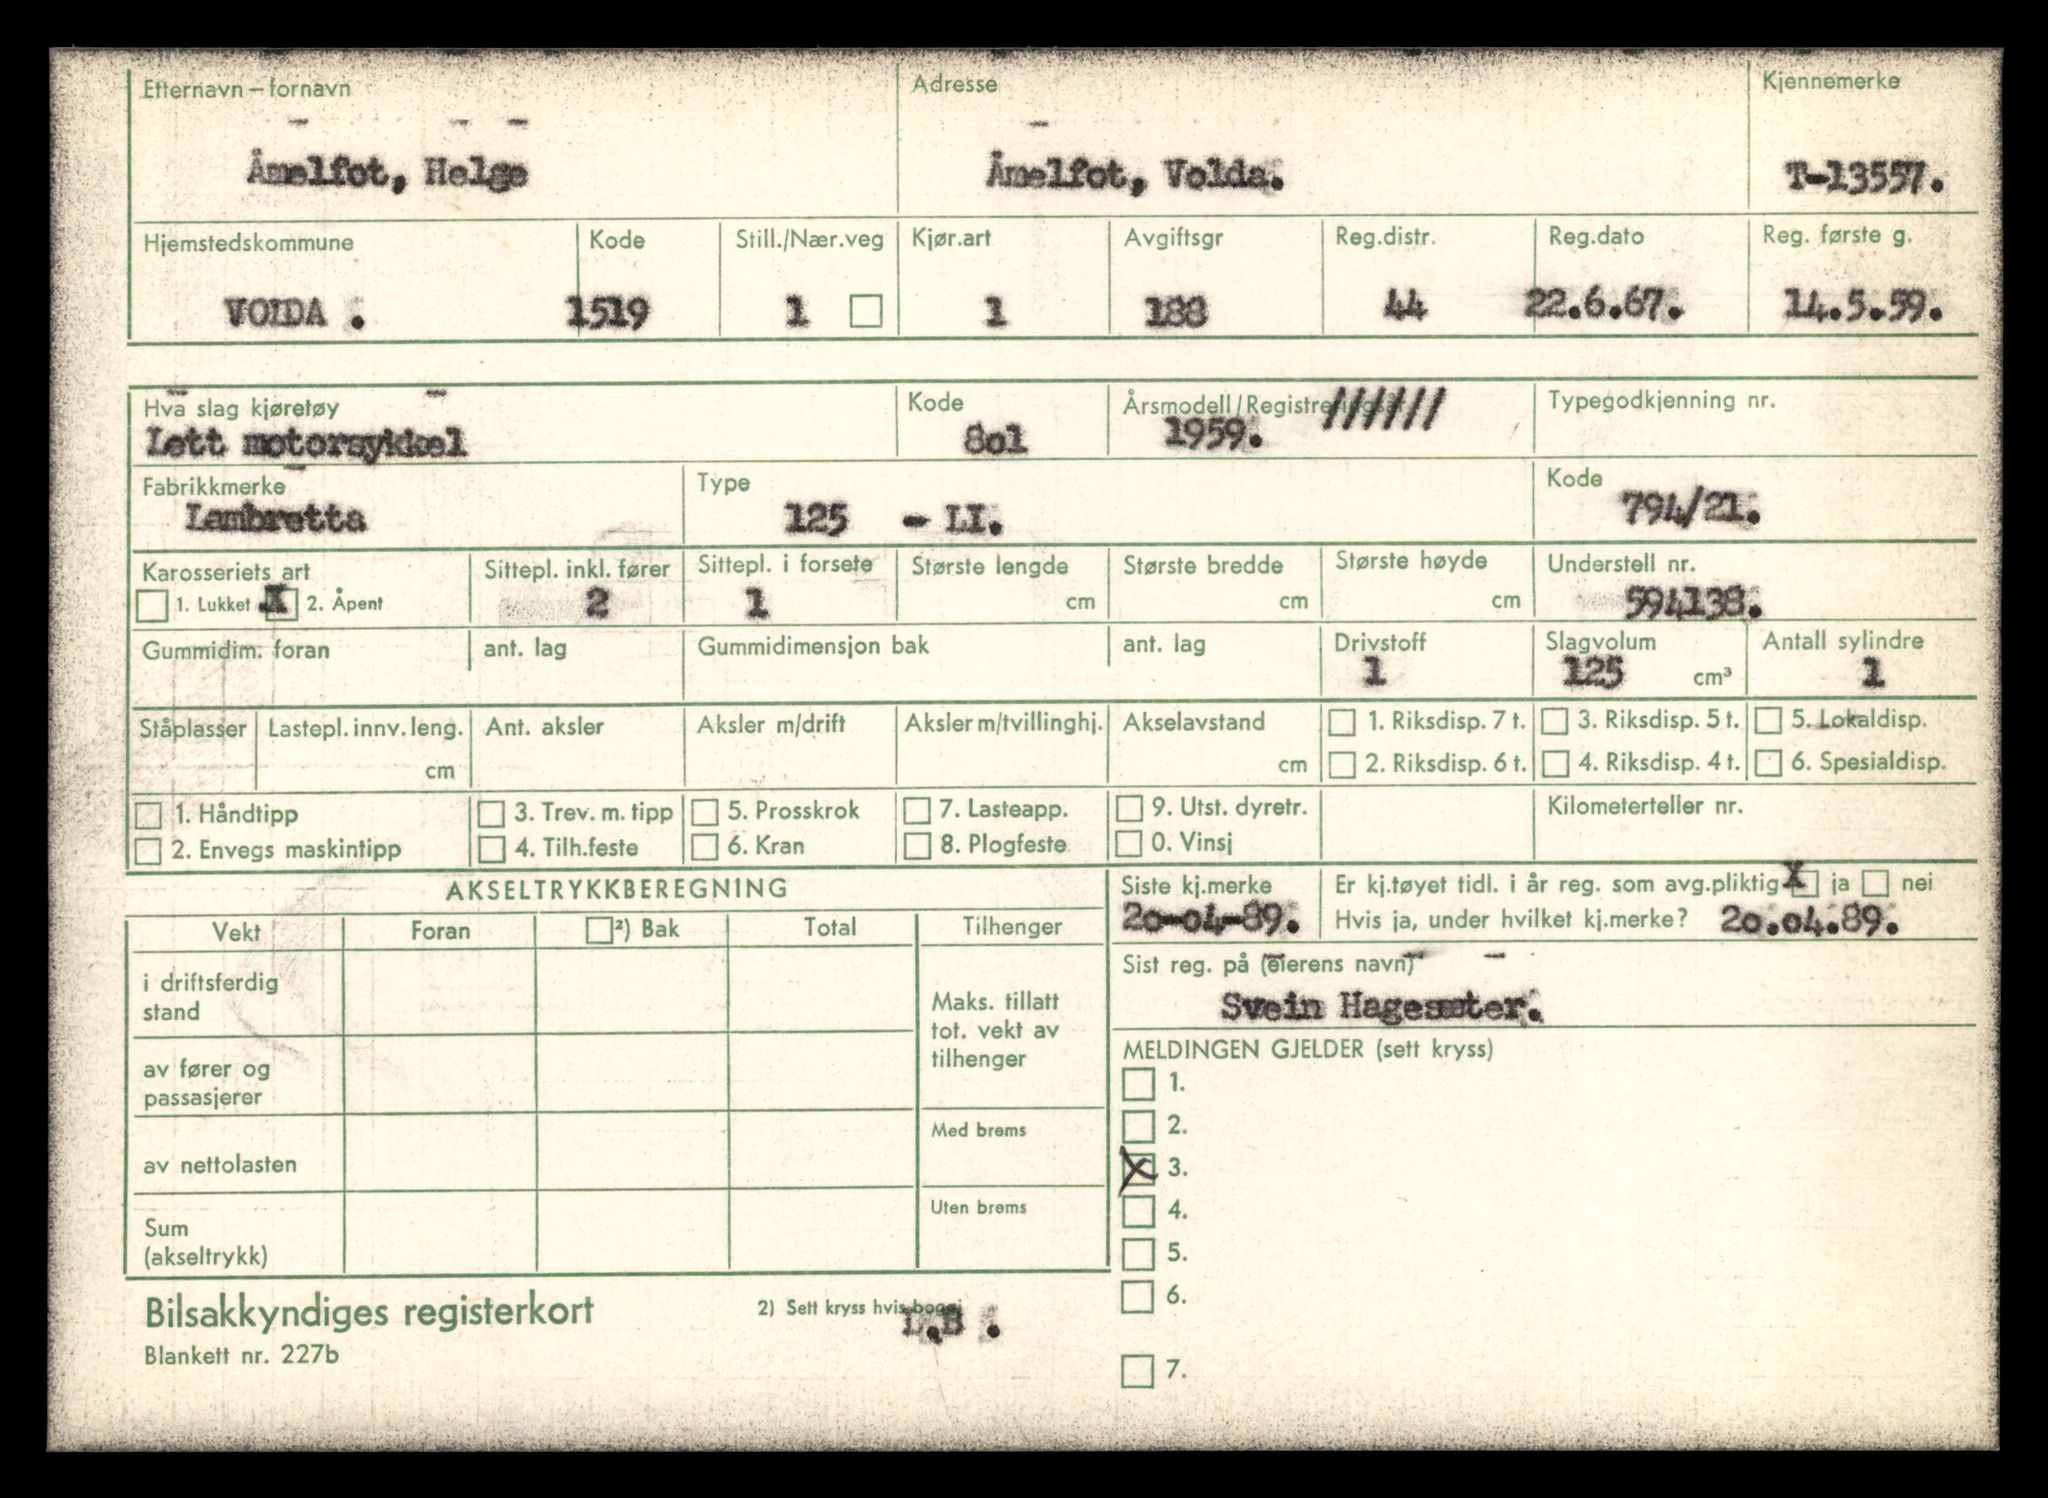 Etternavn – fornavn Adresse Kjennemerke
Åmelfot, Helge Åmelfot, Volda. T-13557.
Hjemstedskommune Kode Still./Nær.veg Kjør.art Avgiftsgr Reg.distr. Reg.dato Reg. første g.
VOLDA . 1519 1 1 188 44 22.6.67. 14.5.59.
Hva slag kjøretøy Kode Årsmodell/Registreringsår Typegodkjenning nr.
Lett motorsykkel 8o1 1959. //////
Fabrikkmerke Type Kode
Lambretta 125 - LI. 794/21.
Karosseriets art Sittepl. inkl. fører Sittepl. i forsete Største lengde Største bredde Største høyde Understell nr.
1. Lukket X 2. Åpent 2 1 cm cm cm 594138.
Gummidim. foran ant. lag Gummidimensjon bak ant. lag Drivstoff Slagvolum Antall sylindre
1 125 cm³ 1
Ståplasser Lastepl. innv. leng. Ant. aksler Aksler m/drift Aksler m/tvillinghj. Akselavstand 1. Riksdisp. 7 t. 3. Riksdisp. 5 t. 5. Lokaldisp.
cm cm 2. Riksdisp. 6 t. 4. Riksdisp. 4 t. 6. Spesialdisp.
1. Håndtipp 3. Trev. m. tipp 5. Prosskrok 7. Lasteapp. 9. Utst. dyretr. Kilometerteller nr.
2. Envegs maskintipp 4. Tilh.feste 6. Kran 8. Plogfeste 0. Vinsj
AKSELTRYKKBEREGNING Siste kj.merke Er kj.tøyet tidl. i år reg. som avg.pliktig X ja nei
20-04-89. Hvis ja, under hvilket kj.merke? 2o.o4.89.
Vekt Foran ²) Bak Total Tilhenger
Sist reg. på (eierens navn)
Svein Hagesæter.
i driftsferdig
stand
av fører og
passasjerer
av nettolasten
Sum
(akseltrykk)
Maks. tillatt
tot. vekt av
tilhenger
Med brems
Uten brems
MELDINGEN GJELDER (sett kryss)
1.
2.
X 3.
4.
5.
6.
7.
Bilsakkyndiges registerkort 2) Sett kryss hvis boggi
L.B .
Blankett nr. 227b